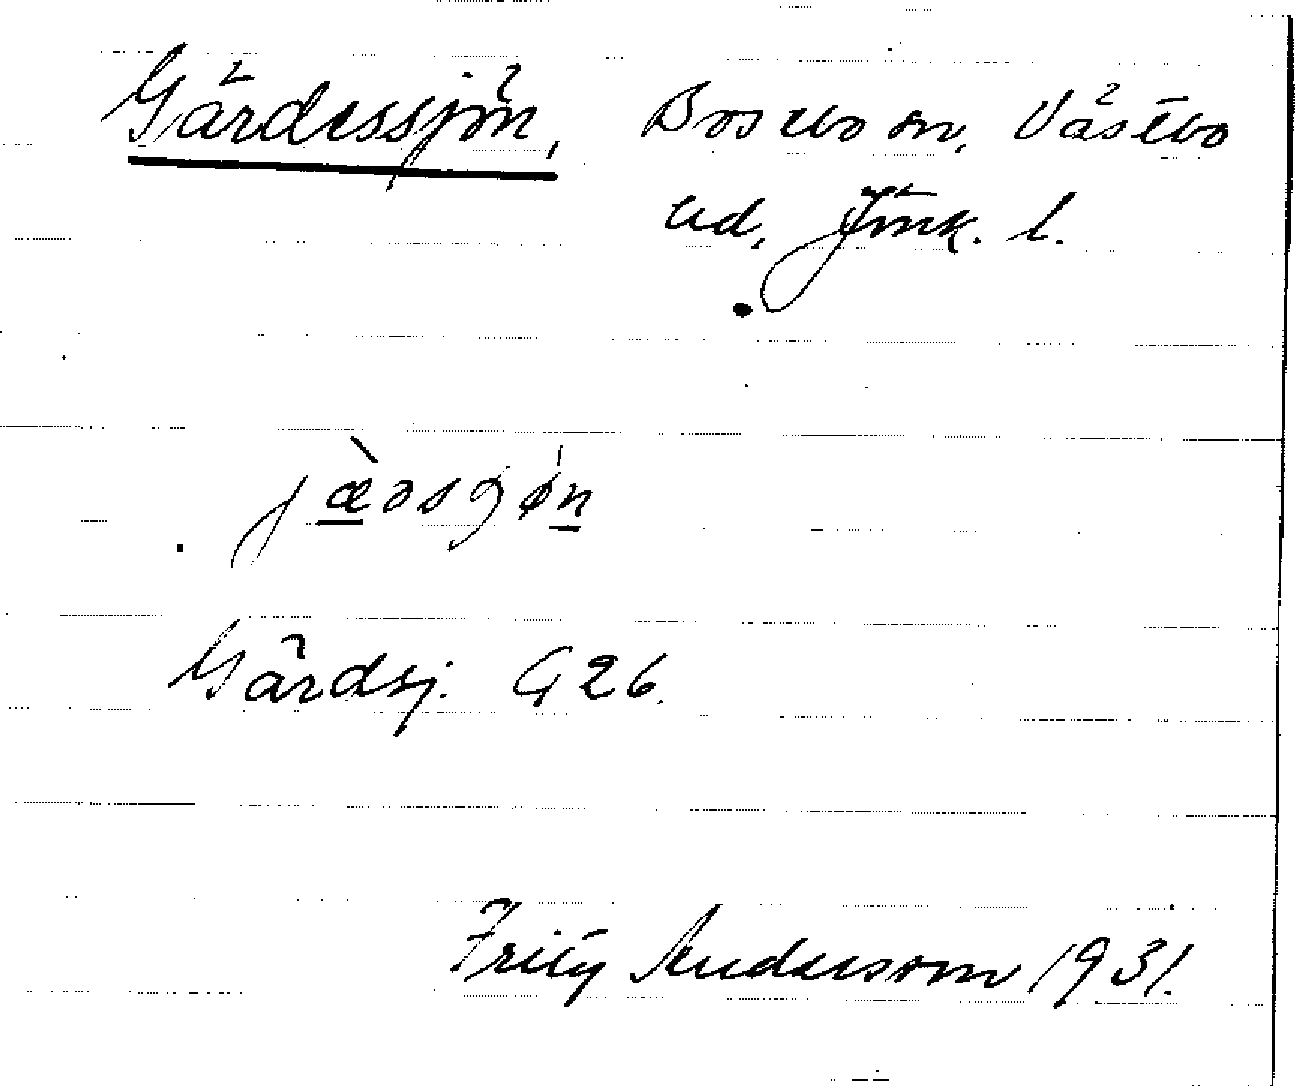 Gärdessjön, Bosebo sn, Västbo
hd, Jönk. l.
Gärdsj. G 26.
Fritz Anderson 1931.